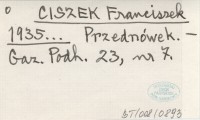 CISZEK Franciszek
1935... Przednówek. –
Gaz. Podh. 23, nr 7.